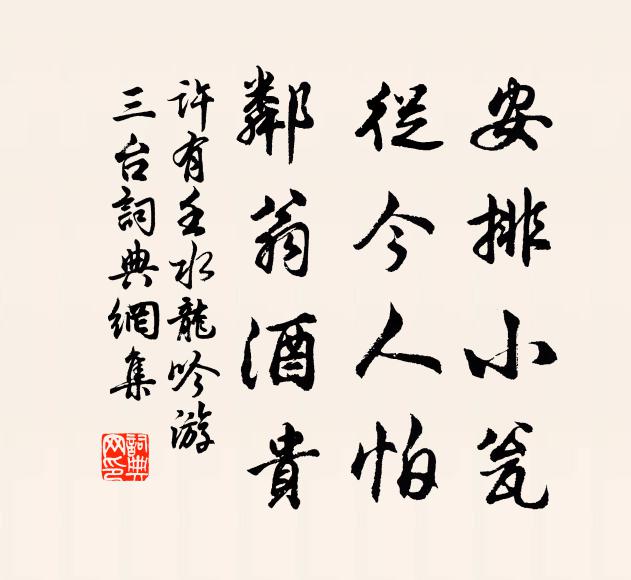 安排小瓮
從今人怕
鄰翁酒貴
許有壬水龍吟游
三台詞典網集
詞典网印